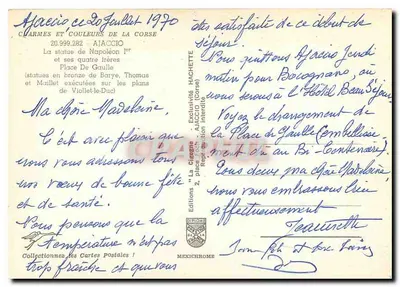 Ajaccio ce 20 Juillet 1970
CHARMES ET COULEURS DE LA CORSE
20.999.282 - AJACCIO
La statue de Napoléon Iᵉʳ
et ses quatre frères
Place De Gaulle
(statues en bronze de Barye, Thomas
et Maillet exécutées sur les plans
de Viollet-le-Duc)
Ma chère Madeleine,
C'est avec plaisir que
nous vous adressons tous
nos vœux de bonne fête
et de santé.
Nous pensons que la
température n'est pas
trop fraîche et que vous
Collectionnez les Cartes Postales !
Editions "La Cigogne"
2, place AJACCIO (Corse)
Exclusivité HACHETTE
Reproduction interdite
MEXICHROME
êtes satisfaite de ce début de
séjour.
Nous quittons Ajaccio Jeudi
matin pour Bocognano, où
nous serons à l'Hôtel Beau Séjour
Voyez le changement de
la Place de Gaulle (embellisse-
ment dû au Bi-Centenaire).
Tous deux, ma chère Madeleine,
nous vous embrassons bien
affectueusement